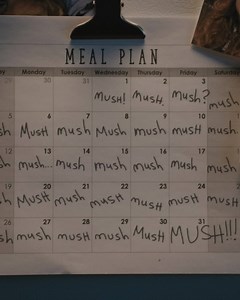 MEAL PLAN
y Monday Tuesday Wednesday Thursday Friday S
29 30 31 1 2 3
mush! mush. mush? mush
5 6 7 8 9 10
sh Mush mush Mush mush mush mush.
12 13 14 15 16 17
sh mush... mush mush mush mush mush
19 20 21 22 23 24
sh MUSH mush mush MUSH mush mush
26 27 28 29 30 31
sh mush mush mush MUSH MUSH!!!